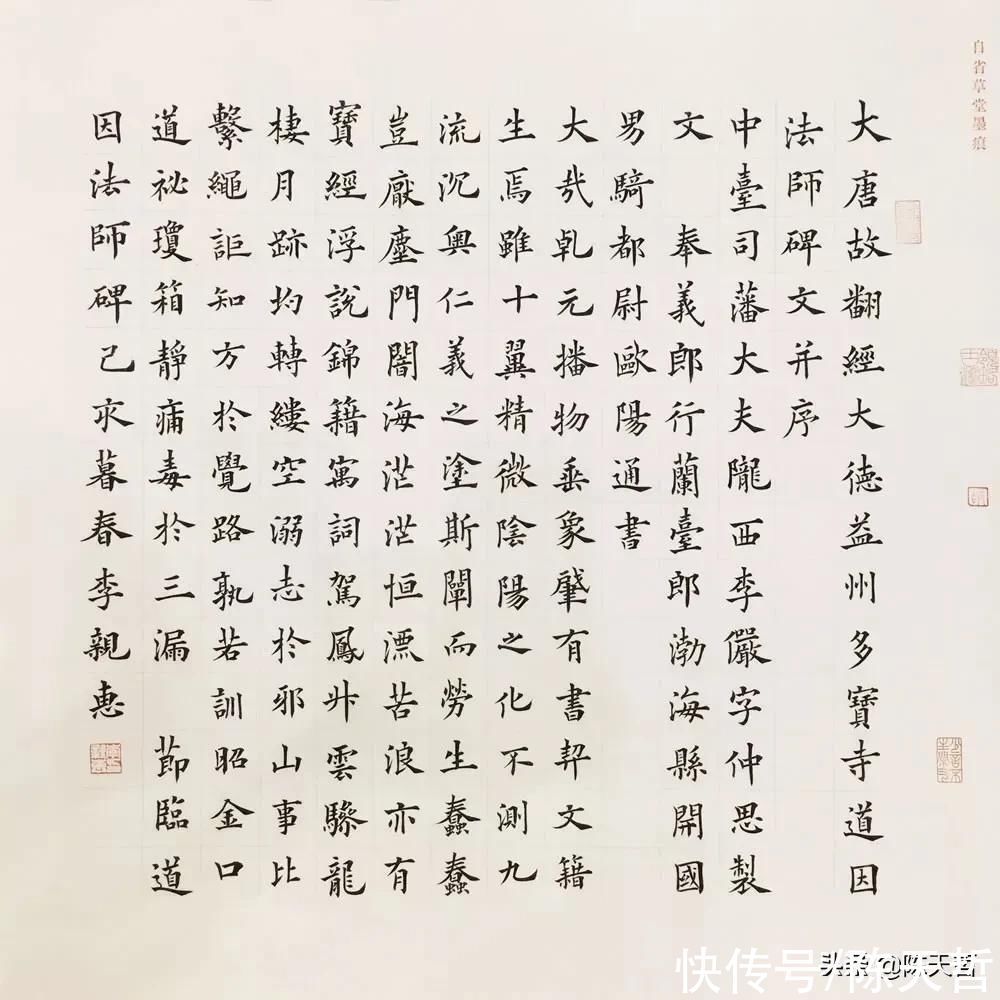 自省草堂墨痕
大唐故翻經大德益州多寶寺道因
法師碑文并序
中臺司藩大夫隴西李儼字仲思製
文 奉義郎行蘭臺郎渤海縣開國
男騎都尉歐陽通書
大哉乹元播物垂象肇有書契文籍
生焉雖十翼精微陰陽之化不測九
流沉奥仁義之塗斯闡而勞生蠢蠢
豈厭塵門闇海茫茫恒漂苦浪亦有
寶經浮說錦籍寓詞駕鳳升雲驂龍
棲月跡均轉縷空溺志於邪山事比
繫繩詎知方於覺路孰若訓昭金口
道祕瓊箱靜痡毒於三漏 節臨道
因法師碑己亥暮春李親惠
快传号/陈天哲
头条 @陈天哲